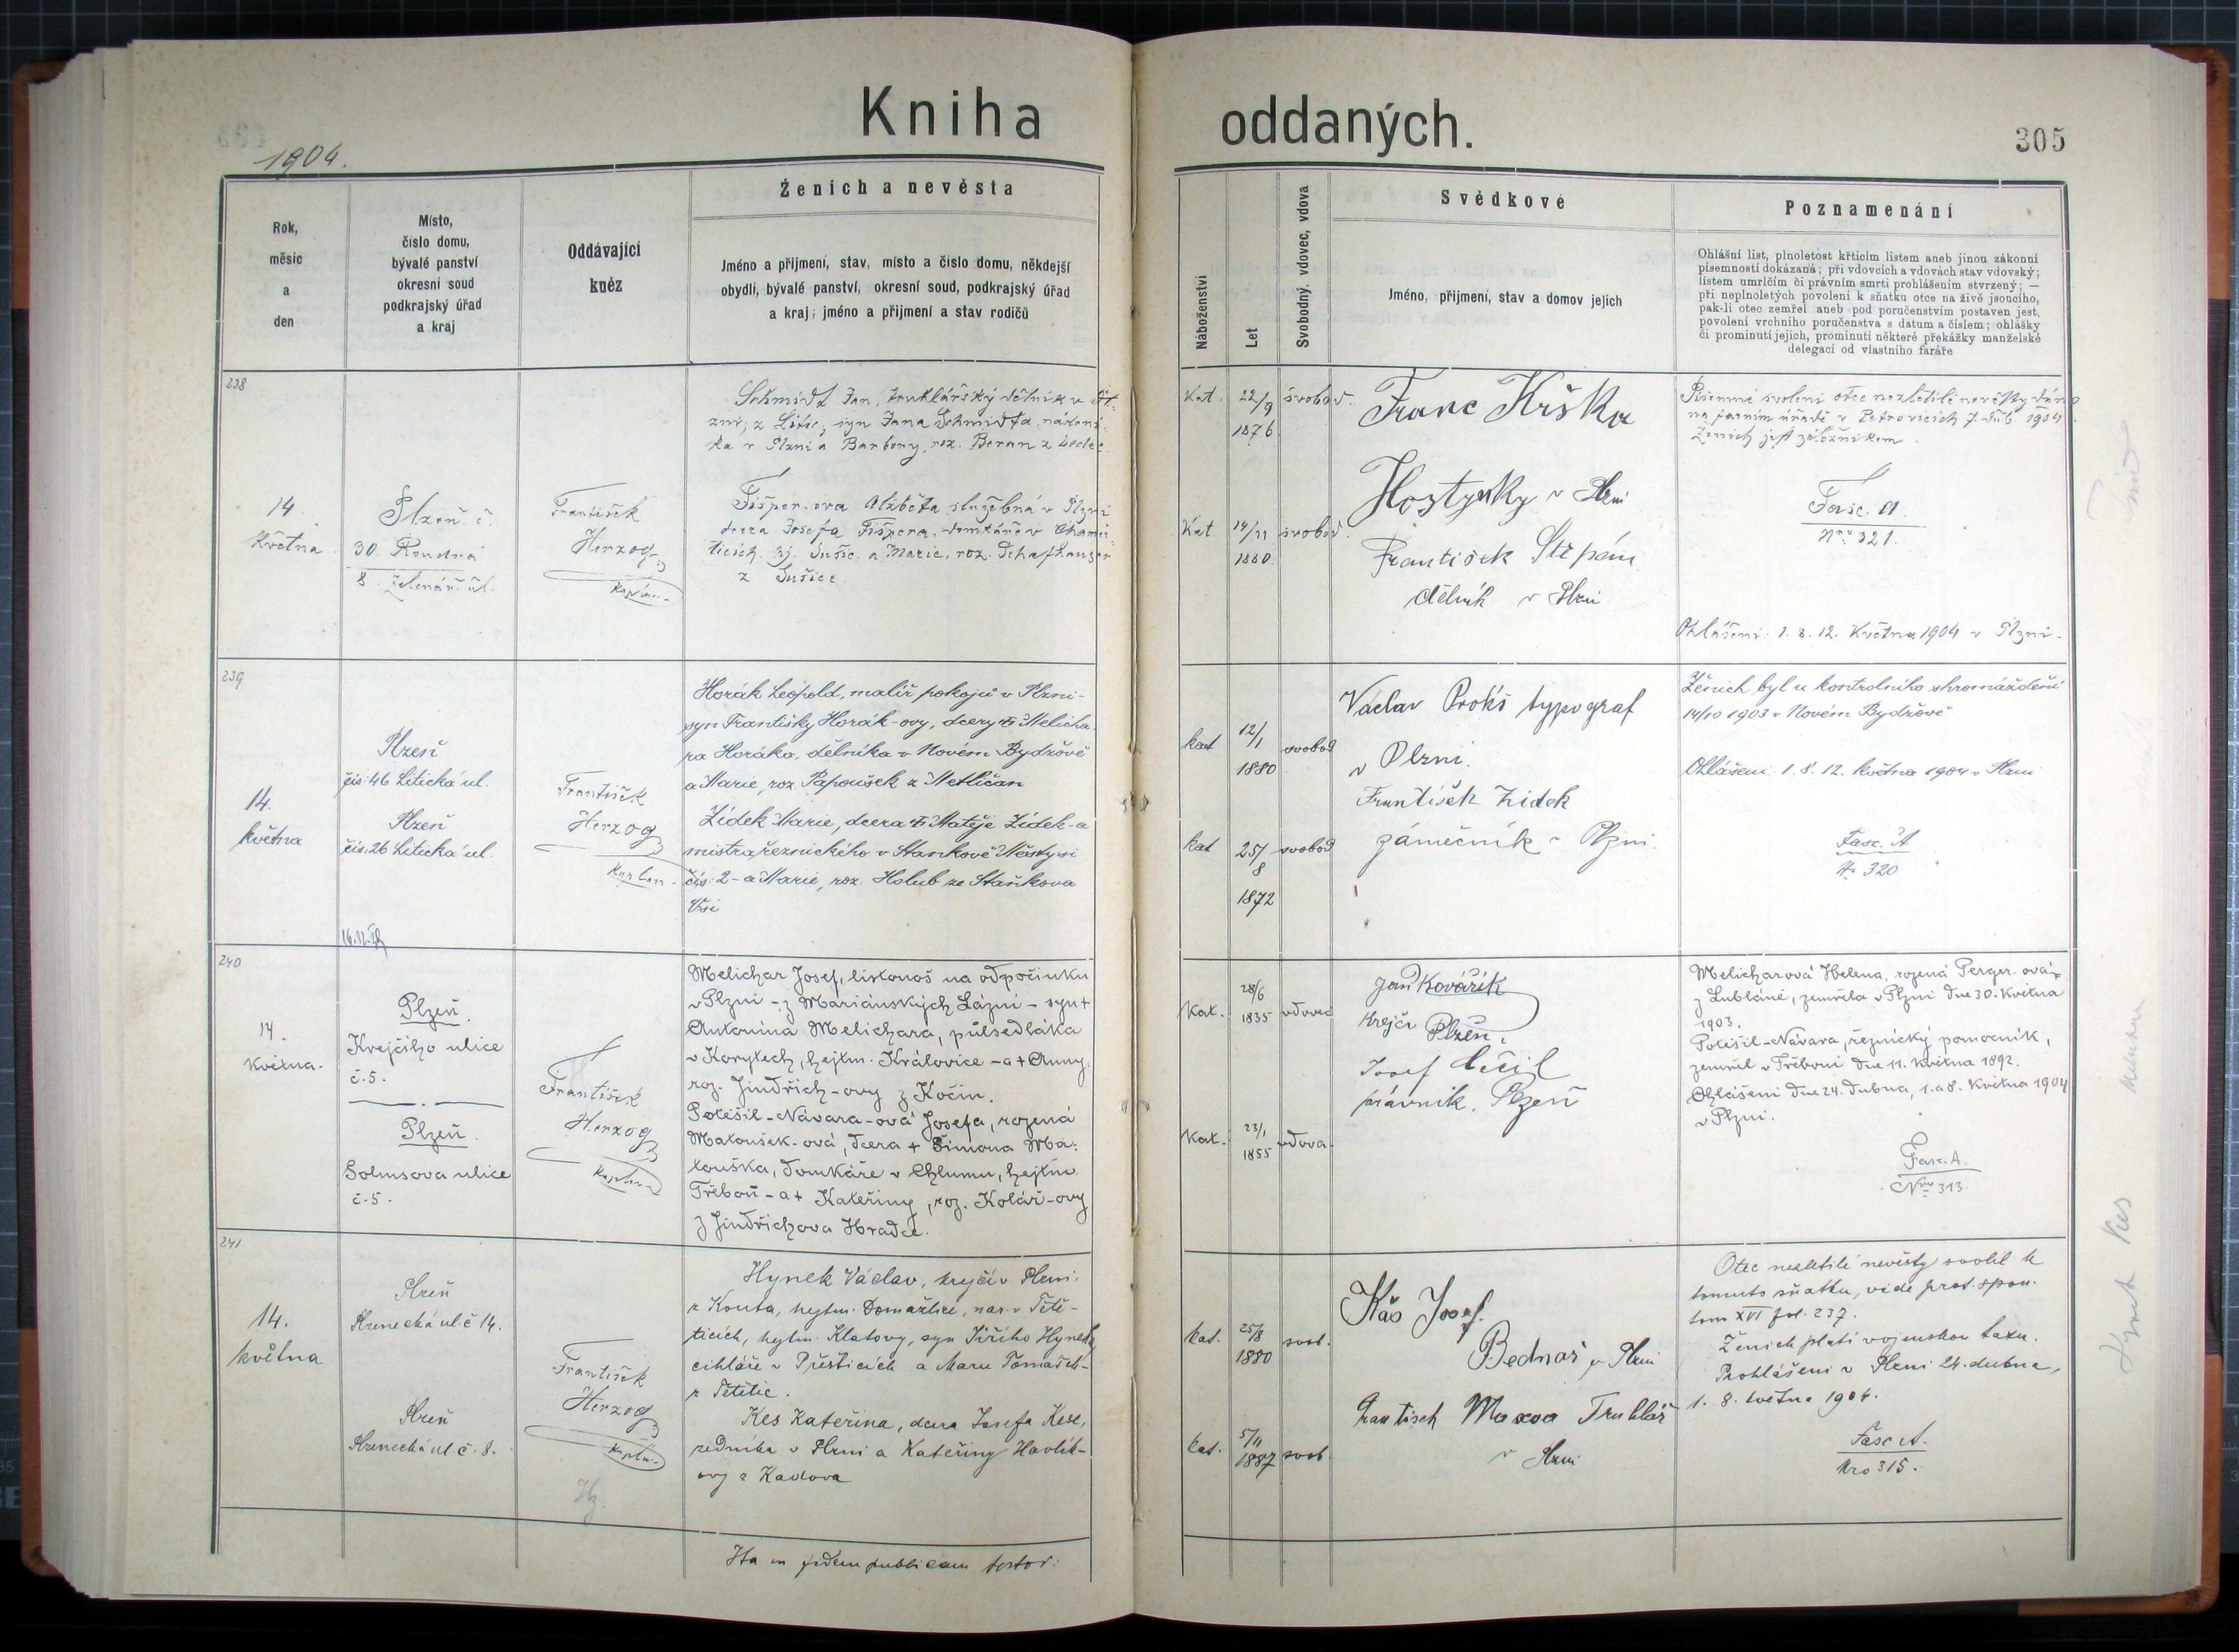 Kniha oddaných.
305
1904.
Rok,
měsíc
a
den
Místo,
číslo domu,
bývalé panství
okresní soud
podkrajský úřad
a kraj
Oddávající
kněz
Ženich a nevěsta
Jméno a přijmení, stav, místo a číslo domu, někdejší
obydlí, bývalé panství, okresní soud, podkrajský úřad
a kraj; jméno a přijmení a stav rodičů
Náboženství
Let
Svobodný, vdovec, vdova
Svědkové
Jméno, přijmení, stav a domov jejich
Poznamenání
Ohlášní list, plnoletost křticím listem aneb jinou zákonní
písemností dokázaná; při vdovcích a vdovách stav vdovský;
listem umrlčím či právním smrti prohlášením stvrzený; —
při neplnoletých povolení k sňatku otce na živě jsoucího,
pak-li otec zemřel aneb pod poručenstvím postaven jest,
povolení vrchního poručenstva s datum a číslem; ohlášky
či prominutí jejich, prominutí některé překážky manželské
delegací od vlastního faráře
238
14
Května
Plzeň č.
30.
8. Zelenář. ul.
František
Herzog
kaplan
Schmidt Jan, truhlářský dělník v Pl-
zni, z Litic, syn Jana Schmidta, nádení-
ka v Plzni a Barbory, roz. Beran z
Fišper-ova Alžběta služebná v Plzni
dcera Josefa Fišpera, domkáře v
ticích hj. Sušic a Marie, roz. Schafhauser
z Sušice
Kat. 22/9 1876 svobod.
Kat. 14/11 1880 svobod.
Franc Krška
Hostynský v Plzni
František Štěpán
dělník v Plzni
Písemné svolení otce nezletilé nevěsty dáno
na farním úřadě v Petrovicích 7. dub. 1904.
Ženich jest záložníkem.
Fasc. A
Nro 321.
Ohlášení: 1. 8. 12. Května 1904 v Plzni.
239
14.
května
Plzeň
čís: 46 Litická ul.
Plzeň
čís: 26 Litická ul.
František
Herzog
kaplan
Horák Leopold, malíř pokojů v Plzni-
syn Františky Horák-ovy, dcery † Melicha-
ra Horáka, dělníka v Novém Bydžově
a Marie, roz. Papoušek z Metličan
Žídek Marie, dcera † Matěje Žídek-a
mistra řeznického v Staňkově Městysi
čís: 2 - a Marie, roz. Holub ze Staňkova
Vsi
kat 12/1 1880 svobod
kat 25/8 1872 svobod
Václav Prokš typograf
v Plzni.
František Zidek
zámečník v Plzni.
Ženich byl u kontrolního shromáždění
14/10 1903 v Novém Bydžově
Ohlášení 1. 8. 12. května 1904 v Plzni
Fasc. A
№ 320
240
14.
Května.
Plzeň
Krejčího ulice
č. 5.
Plzeň.
Solmsova ulice
č. 5.
František
Herzog
kaplan
Melichar Josef, listonoš na odpočinku
v Plzni - z Mariánských Lázní - syn †
Antonína Melichara, půlsedláka
v Korytech, hejtm. Královice - a † Anny,
roz. Jindřich-ovy z Kočin.
Potěšil-Návara-ová Josefa, rozená
Matoušek-ová, dcera † Šimona Ma-
touška, domkáře v Chlumu, hejtm.
Třeboň - a † Kateřiny, roz. Kolář-ovy
z Jindřichova Hradce.
Kat. 28/6 1835 vdovec
Kat. 23/1 1855 vdova
Jan Kovářík
Krejčí Plzeň.
Josef
právník. Plzeň
Melicharová Helena, rozená Perger-ová
z Lubláně, zemřela v Plzni dne 30. Května
1903.
Potěšil-Návara, řeznický pomocník,
zemřel v Třeboni dne 11. Května 1892.
Ohlášení dne 24. dubna, 1. a 8. Května 1904
v Plzni.
Fasc. A.
Nro 313.
241
14.
května
Plzeň
ul. č 14.
Plzeň
ul. č. 8.
František
Herzog
kaplan
Hynek Václav, krejčí v Plzni.
z Kouta, hejtm. Domažlice, nar. v Těti-
ticích, hejtm. Klatovy, syn Jiřího Hynek
cihláře v Přešticích a Marie Tomášek-
z Tětětic.
Kes Kateřina, dcera Josefa Kese,
zedníka v Plzni a Kateřiny Havlík-
ovy z Kadova
kat. 25/8 1880 svob.
kat. 5/11 1887 svob
Kás Josef.
Bednář v Plzni
Frantisek Maxa Truhlář
v Plzni
Otec nezletilé nevěsty svolil k
tomuto sňatku, vide prot. spon.
tom XVI fol. 237.
Ženich platí vojenskou taxu.
Prohlášení v Plzni 24. dubna,
1. 8. května 1904.
Fasc A.
Nro 315.
Ita in fidem publicam testor: